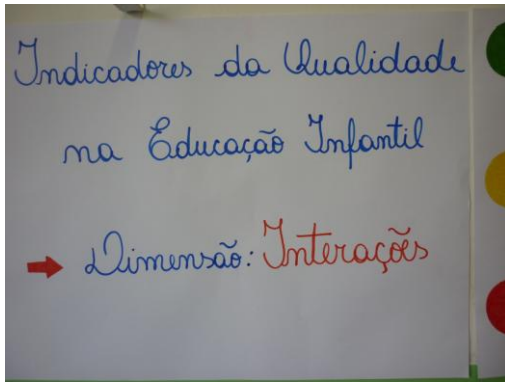 Indicadores da Qualidade
na Educação Infantil
Dimensão: Interações